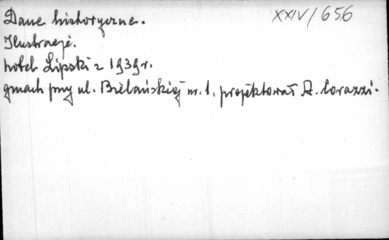 Dane historyczne.
XXIV/656
Ilustracje.
hotel Lipski z 1939r.
gmach przy ul. Bielańskiej nr. 1. projektował A. Corazzi.